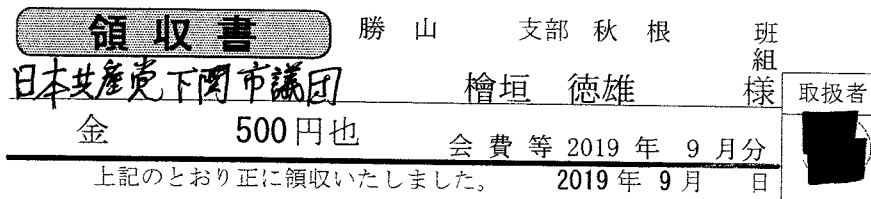 領収書 勝山 支部 秋根 班
組
日本共産党下関市議団 檜垣 徳雄 様 取扱者
金 500円也 会費等 2019年 9月分
上記のとおり正に領収いたしました。 2019年9月 日